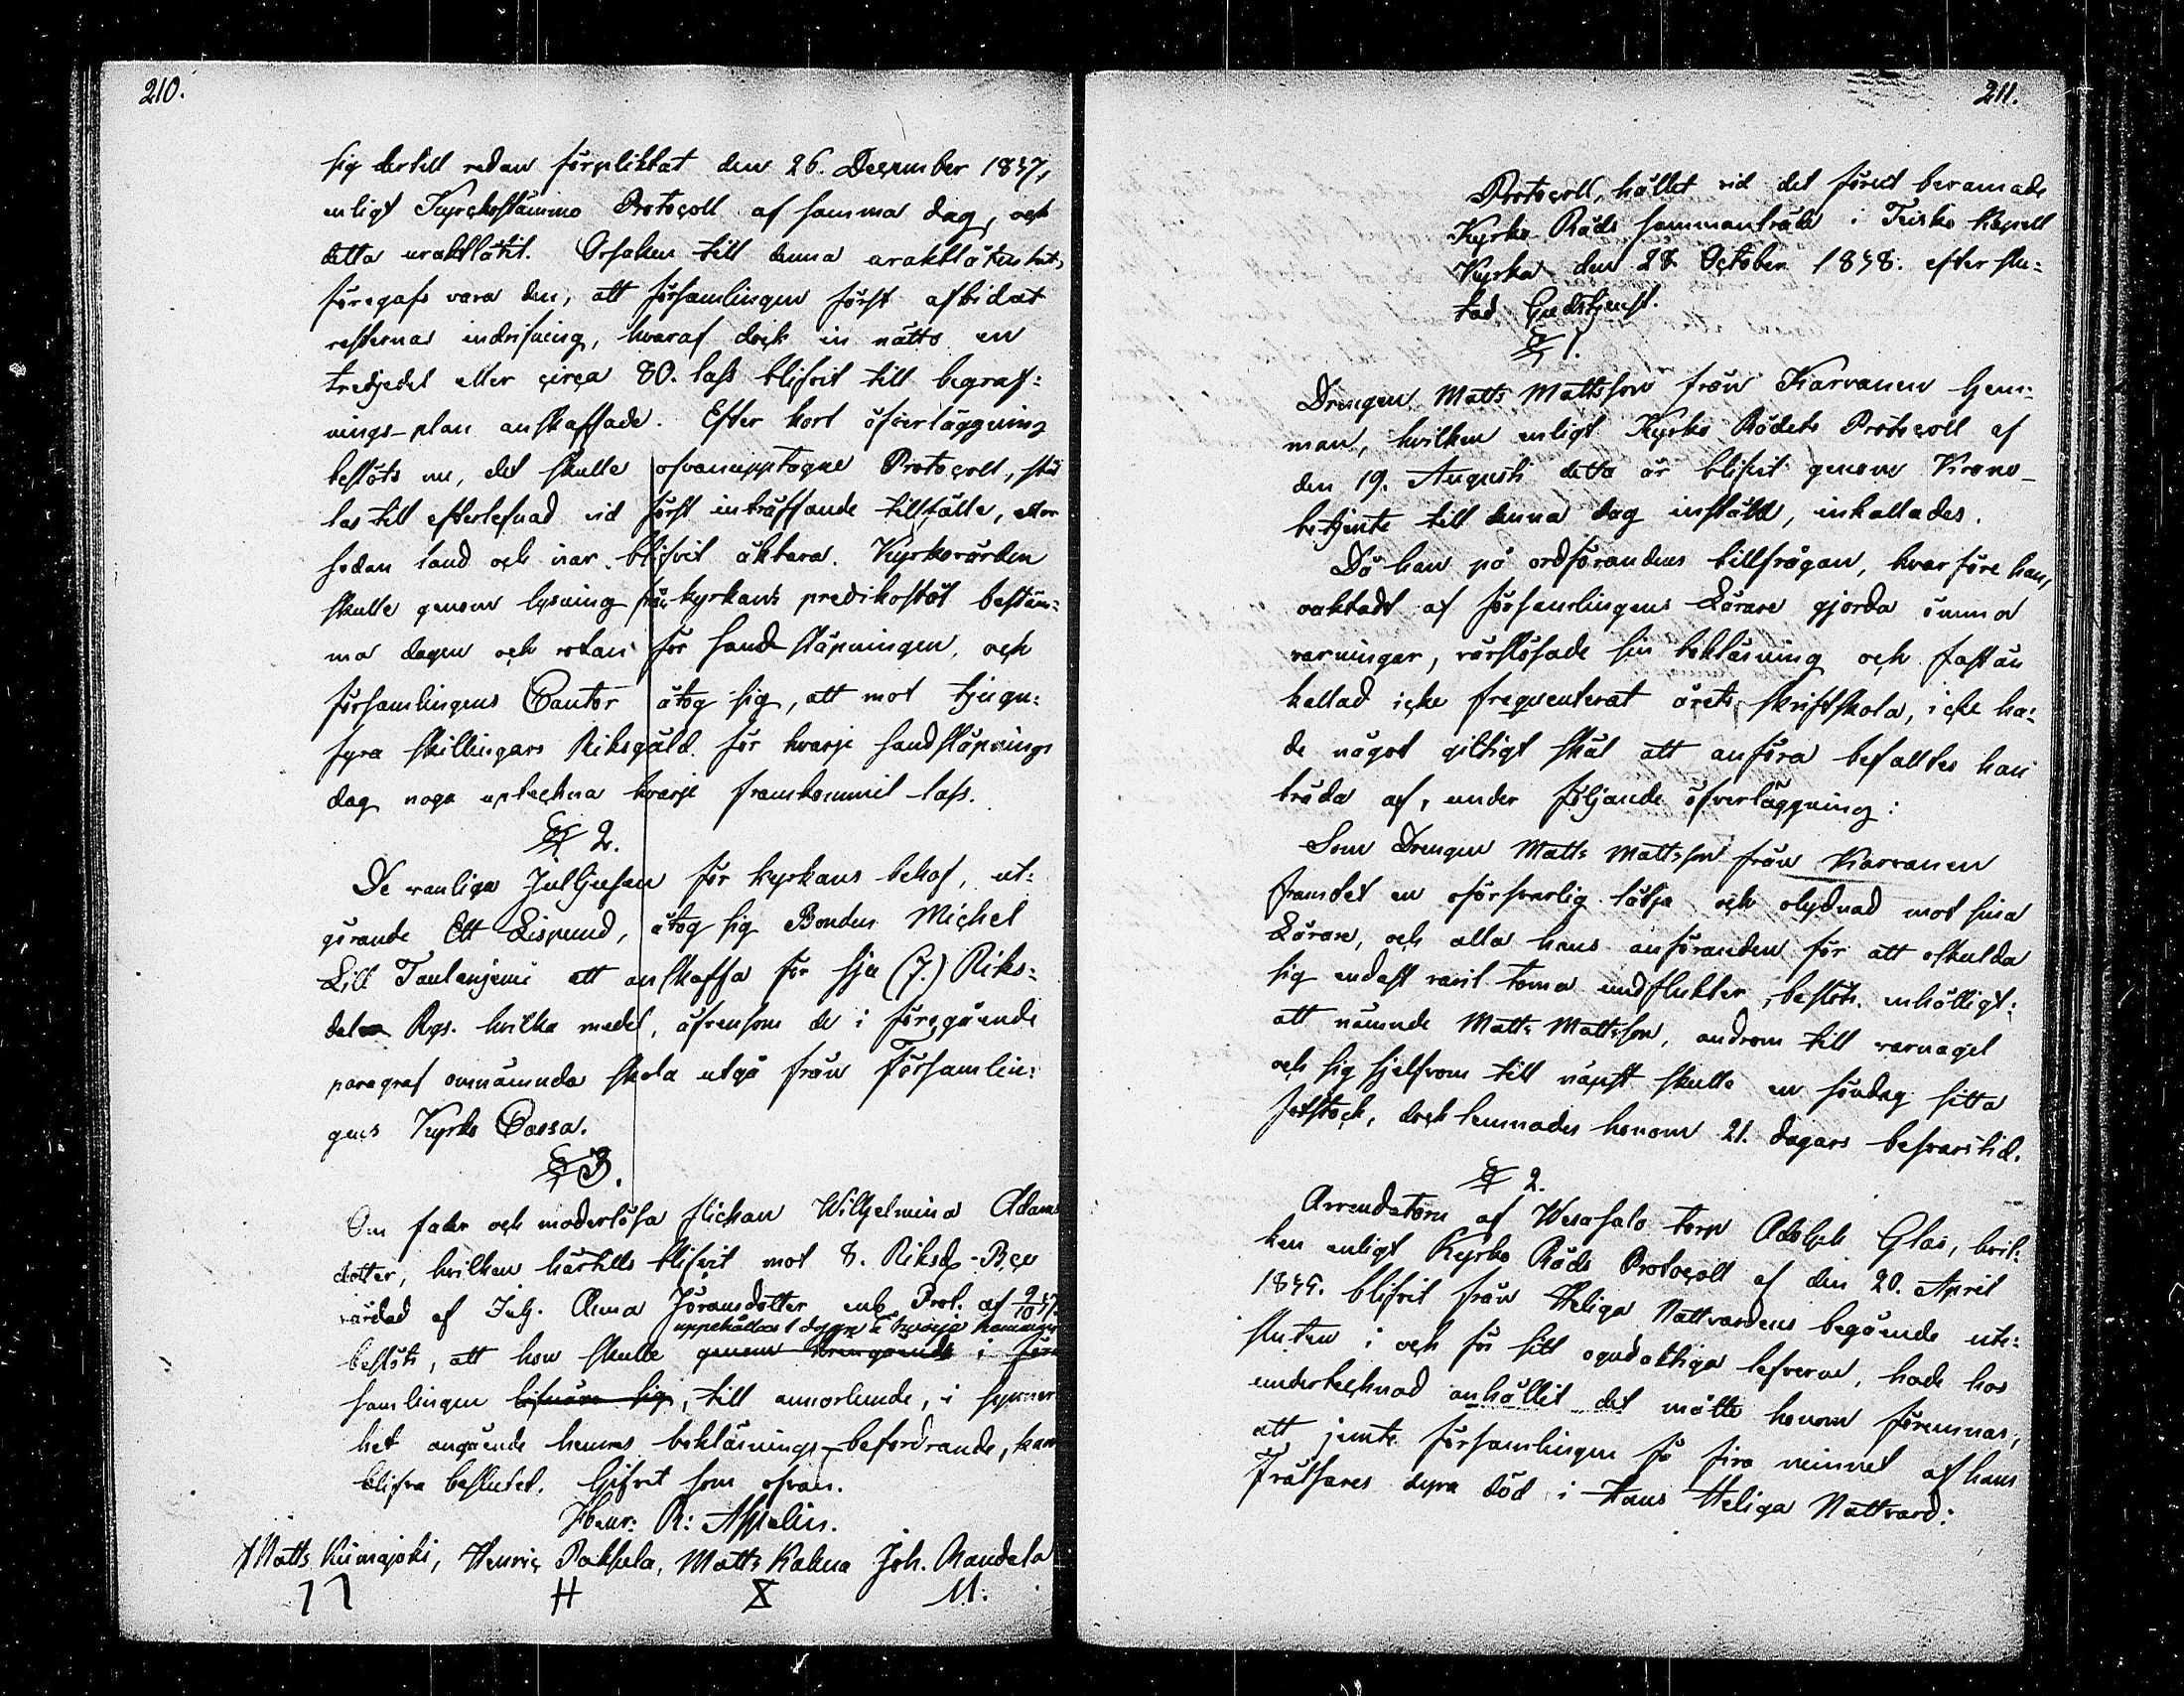 210.
sig dertill redan förpliktat den 26. December 1837,
enligt Kyrckostämmo Protocoll af samma dag, och
detta uraktlåtit. Orsaken till denna uraktlåtenhet,
föregafs vara den, att församlingen först afbidat
resternas indrifning, hvaraf dock in nätto en
tredjedel eller circa 80. lass blifvit till begraf:
nings-plan anskaffade. Efter kort öfverläggning
beslöts nu, det skulle ofvanupptagne Protocoll, stäl
las till efterlefnad vid först inträffande tillfälle,
sedan land och isar blifvit åkbara. Kyrkovärden
skulle genom lysning från kyrkans predikostol bestäm:
ma dagen och rotan för sand släpningen, och
församlingens Cantor åtog sig, att mot tjugu:
fyra skillingars Riksgäld för hvarje sandsläpnings
dag noga uptechna hvarje framkommit lass.
§ 2.
De vanliga Julljusen för kyrkans behof, ut:
görande Ett Lispund, åtog sig Bonden Michel
Lill Taulanjemi att anskaffa för sju (7.) Riks:
daler Rgs. hvilka medel, äfvensom de i föregående
paragraf omnämnda skola utgå från Församlin:
gens Kyrko Cassa.
§ 3.
Om fader och moderlösa flickan Wilhelmina Adams
dotter, hvilken härtills blifvit mot 8. Riksd. Bco
vårdad af Inh. Anna Jöransdotter enl. Prot. af 9/10 37.
uppehållas 1 dygn å hvarje hemman
beslöts, att hon skulle genom kringgående i för
samlingen lifnära sig, till annorlunda, i synner
het angående hennes beklädnings-befordrande, kan
blifva beslutet. Gifvet som ofvan.
Henr: R: Appelin.
Matts Kiimajoki, Henric Pakkala, Matts Kahna Joh. Mandela
H X M.
211.
Protocoll, hållet vid det förut beramade
Kyrko Råds sammanträde i Teisko Kapell
Kyrka den 28 October 1838. efter slu:
tad Gudstjenst.
§ 1.
Drengen Matts Mattsson från Karvanen hem:
man, hvilken enligt Kyrko Rådets Protocoll af
den 19. Augusti detta år blifvit genom Krono-
betjente till denna dag inställd, inkallades.
Då han på ordförandens tillfrågan, hvarföre han,
oaktadt af församlingens Lärare gjorda ömma
varningar, vårdslösade sin bokläsning och fastän
kallad icke frequenterat årets skriftskola, icke ha:
de något giltigt skäl att anföra befalltes han
träda af, under följande öfverläggning:
Som Drengen Matts Mattsson från Karvanen
framdet en oförsvarlig lätja och olydnad mot sina
Lärare, och alla hans anföranden för att oskulda
sig endast varit toma undflukter, beslöts enhälligt:
att nämnde Matts Mattsson, androm till varnagel
och sig sjelfvom till näpst skulle en söndag sitta
fotstock, dock lemnades honom 21. dagars besvärstid.
§ 2.
Arrendatorn af Wesasalo torp Adolph Glas, hvil:
ken enligt Kyrko Råds Protocoll af den 20. April
1834. blifvit från Heliga Nattvardens begående ute:
sluten i och för sitt ogudaktiga lefverne, hade hos
undertecknad anhållit det måtte honom förunnas,
att jemte församlingen få fira minnet af hans
Frälsares dyra död i Hans Heliga Nattvard: